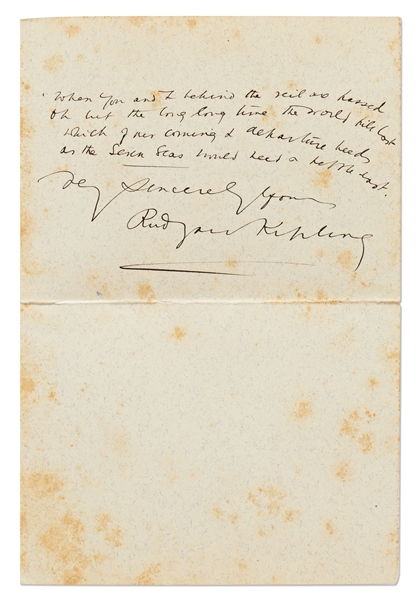 When You and I behind the veil are passed
Oh but the long long time the world will last
Which of our coming & departure heeds
as the Seven Seas would heed a pebble cast.
Very Sincerely Yours
Rudyard Kipling